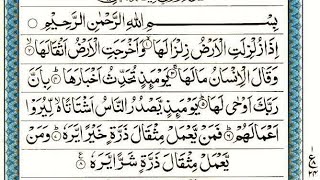 بِسْمِ اللهِ الرَّحْمٰنِ الرَّحِيْمِ
اِذَا زُلْزِلَتِ الْاَرْضُ زِلْزَالَهَا ۙ﴿۱﴾ وَاَخْرَجَتِ الْاَرْضُ اَثْقَالَهَا ۙ﴿۲﴾
وَقَالَ الْاِنْسَانُ مَا لَهَا ۚ﴿۳﴾ يَوْمَئِذٍ تُحَدِّثُ اَخْبَارَهَا ۙ﴿۴﴾ بِاَنَّ
رَبَّكَ اَوْحٰى لَهَا ؕ﴿۵﴾ يَوْمَئِذٍ يَّصْدُرُ النَّاسُ اَشْتَاتًا ۙ لِّيُرَوْا
اَعْمَالَهُمْ ؕ﴿۶﴾ فَمَنْ يَّعْمَلْ مِثْقَالَ ذَرَّةٍ خَيْرًا يَّرَهٗ ؕ﴿۷﴾ وَمَنْ
يَّعْمَلْ مِثْقَالَ ذَرَّةٍ شَرًّا يَّرَهٗ ﴿۸﴾